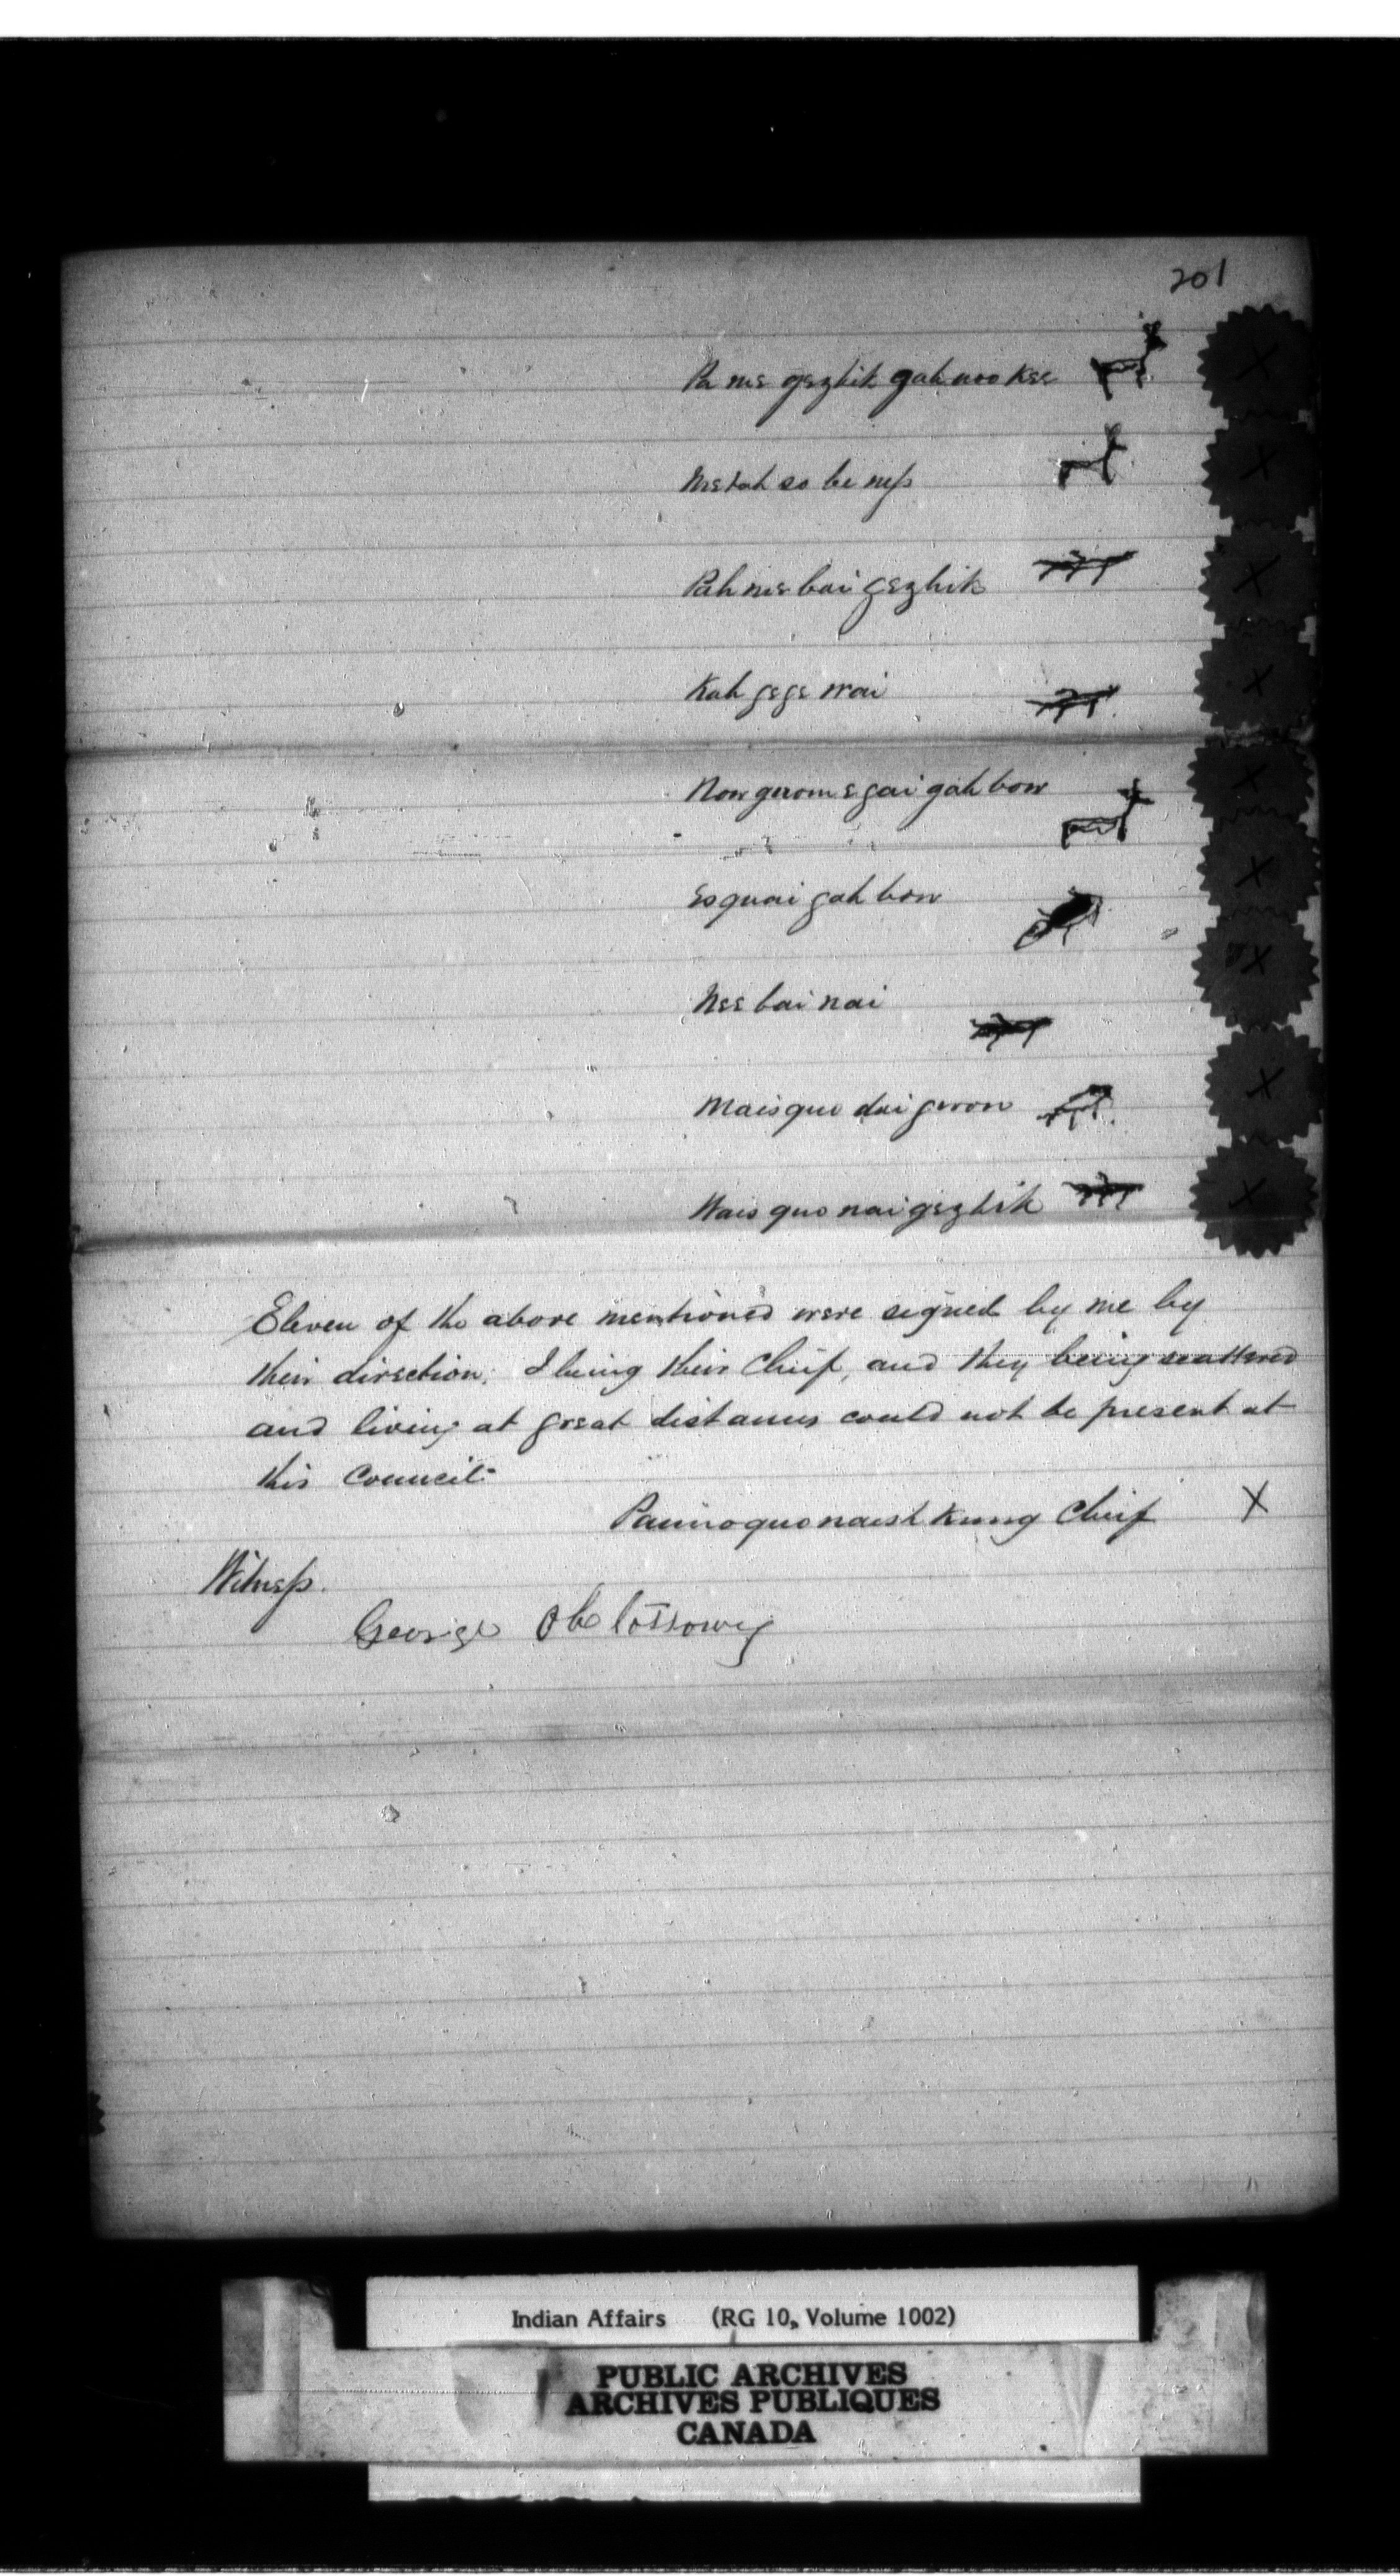 201
Pa me gezhik gah noo kee
Me tah so be ness
Pah me bai gezhik
Kah ge ge wai
Now quom e gai gah bow
Es quai gah bow
Nee bai nai
Mais que dai gwon
Wais quo nai gezhik
Eleven of the above mentioned were signed by me by
their direction. I being their Chief, and they being scattered
and living at great distances could not be present at
this Council
Paimoquonaishkung Chief X
Witness.
George
Indian Affairs (RG 10, Volume 1002)
PUBLIC ARCHIVES
ARCHIVES PUBLIQUES
CANADA